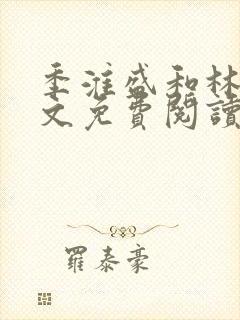 季淮盛和林
文免費閱讀
羅泰豪